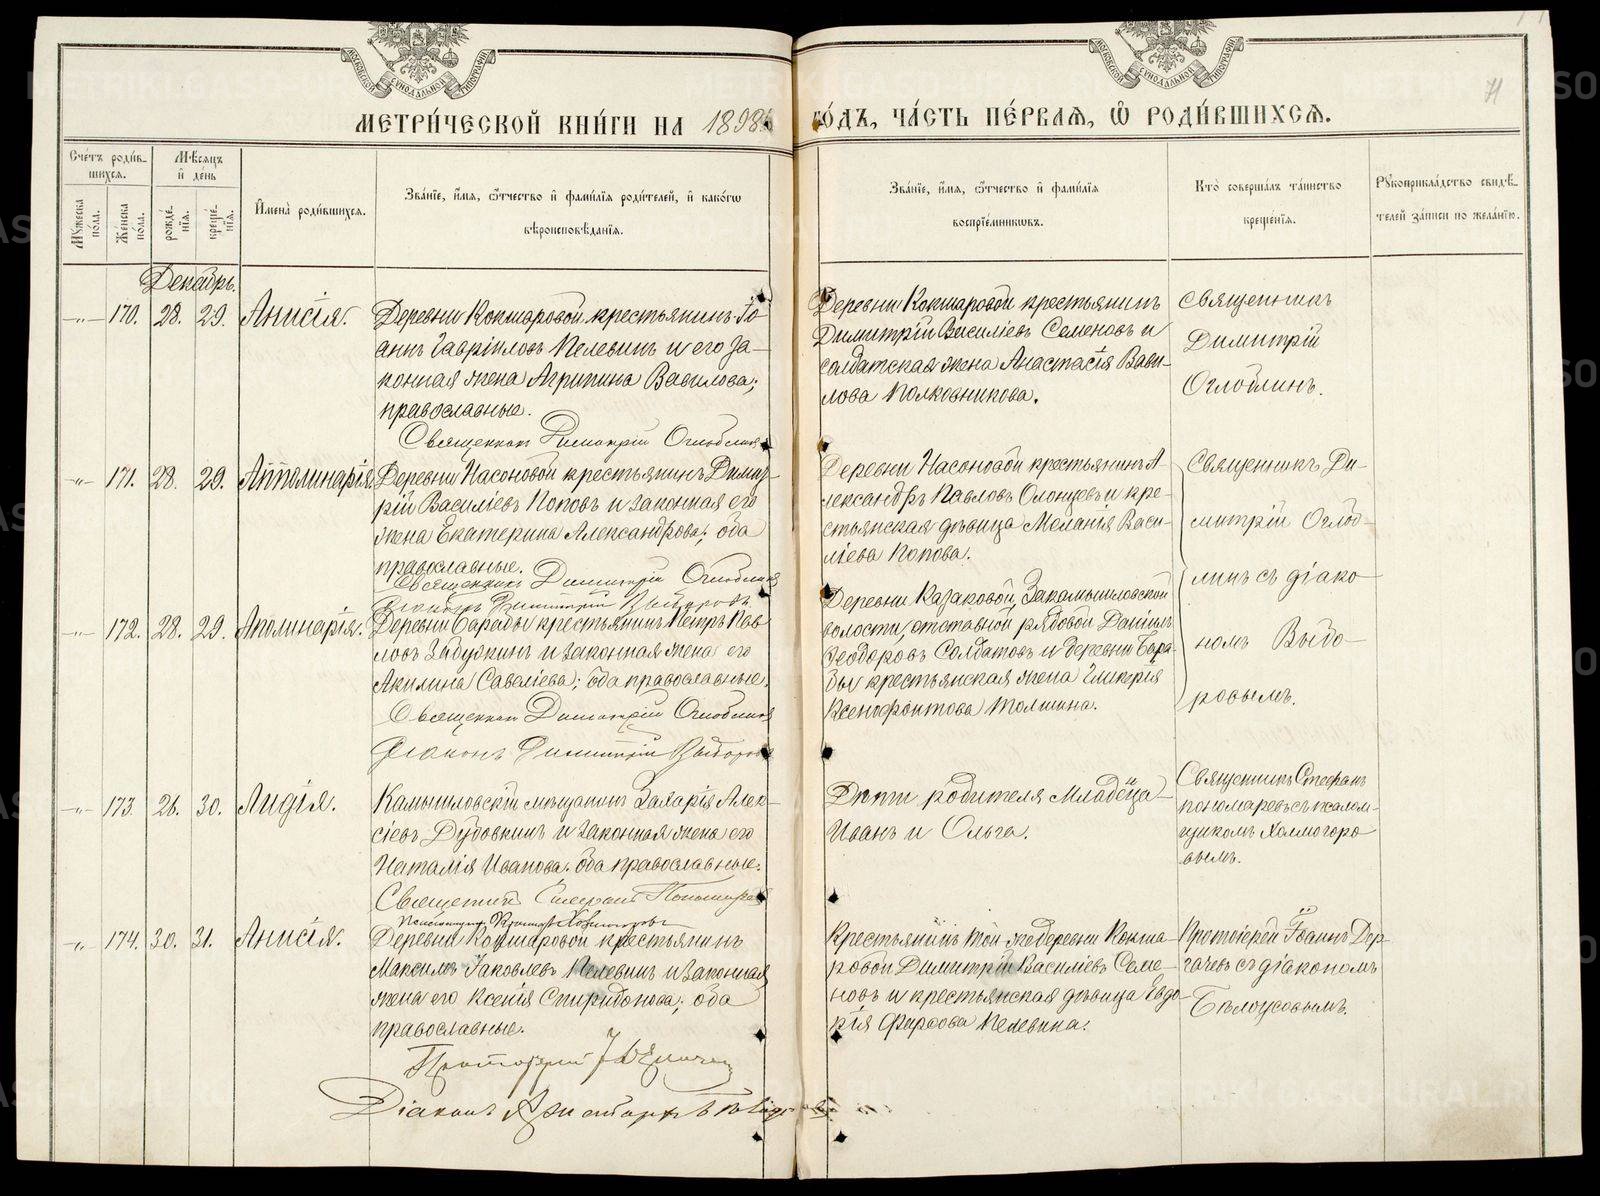 МОСКОВСКОЙ СѴНОДАЛЬНОЙ ТИПОГРАФІИ
МОСКОВСКОЙ СѴНОДАЛЬНОЙ ТИПОГРАФІИ
МЕТРИ́ЧЕСКОЙ КНИ́ГИ НА 1898 ГО́ДЪ, ЧА́СТЬ ПЕ́РВАѦ, Ѽ РОДИ́ВШИХСѦ.
Сче́тъ роди́в-
шихсѧ.
Мꙋ́жеска по́ла.
Же́нска по́ла.
Мѣ́сѧцъ
и҆ де́нь
рожде́-нїѧ.
креще́-нїѧ.
И҆мена̀ роди́вшихсѧ.
Зва́нїе, и҆́мѧ, ѻ҆́тчество и҆ фами́лїѧ роди́телей, и҆ како́гѡ
вѣроисповѣ́данїѧ.
Зва́нїе, и҆́мѧ, ѻ҆́тчество и҆ фами́лїѧ
воспрїе́мникѡвъ.
Кто̀ соверша́лъ та́инство
креще́нїѧ.
Рꙋкоприкла́дство свидѣ́-
телей за́писи по жела́нїю.
Декабрь.
-"- 170. 28. 29. Анисія.
Деревни Кокшаровой крестьянинъ Іо-
аннъ Гавріиловъ Пелевинъ и его за-
конная жена Агрипина Вавилова;
православные.
Священникъ Димитрій Оглоблинъ
Деревни Кокшаровой крестьянинъ
Димитрій Василіевъ Семеновъ и
солдатская жена Анастасія Вави-
лова Полковникова.
Священникъ
Димитрій
Оглоблинъ.
-"- 171. 28. 29. Апполинарія.
Деревни Насоновой крестьянинъ Димит-
рій Василіевъ Поповъ и законная его
жена Екатерина Александрова; оба
православные.
Священникъ Димитрій Оглоблинъ
Діаконъ Димитрій Выборовъ
Деревни Насоновой крестьянинъ А-
лександръ Павловъ Олонцевъ и кре-
стьянская дѣвица Меланія Васи-
ліева Попова.
Священникъ Ди-
митрій Оглоб-
линъ съ діако-
номъ Выбо-
ровымъ.
-"- 172. 28. 29. Аполинарія.
Деревни Барабы крестьянинъ Петръ Пав-
ловъ и законная жена его
Акилина Савеліева; оба православные.
Священникъ Димитрій Оглоблинъ
Діаконъ Димитрій Выборовъ
Деревни Казаковой, Закамышловской
волости, отставной рядовой Даніилъ
Ѳеодоровъ Солдатовъ и деревни Бара-
бы крестьянская жена Гликерія
Ксенофонтова Толмина.
-"- 173. 26. 30. Лидія.
Камышловскій мѣщанинъ Захарія Алек-
сіевъ Дубовкинъ и законная жена его
Наталія Иванова. оба православные.
Священникъ Стефанъ Пономаревъ
Дѣти родителя Младенца
Иванъ и Ольга.
Священникъ Стефанъ
Пономаревъ съ псалом-
щикомъ Холмогоро-
вымъ.
-"- 174. 30. 31. Анисія.
Деревни Кокшаровой крестьянинъ
Максимъ Іаковлевъ Пелевинъ и законная
жена его Ксенія Спиридонова; оба
православные.
Протоіерей І Дергачевъ
Діаконъ Бѣлоусовъ
Крестьянинъ той же деревни Кокша-
ровой Димитрій Василіевъ Семе-
новъ и крестьянская дѣвица Евдо-
кія Фирсова Пелевина.
Протоіерей Іоаннъ Дер-
гачевъ съ діакономъ
Бѣлоусовымъ.